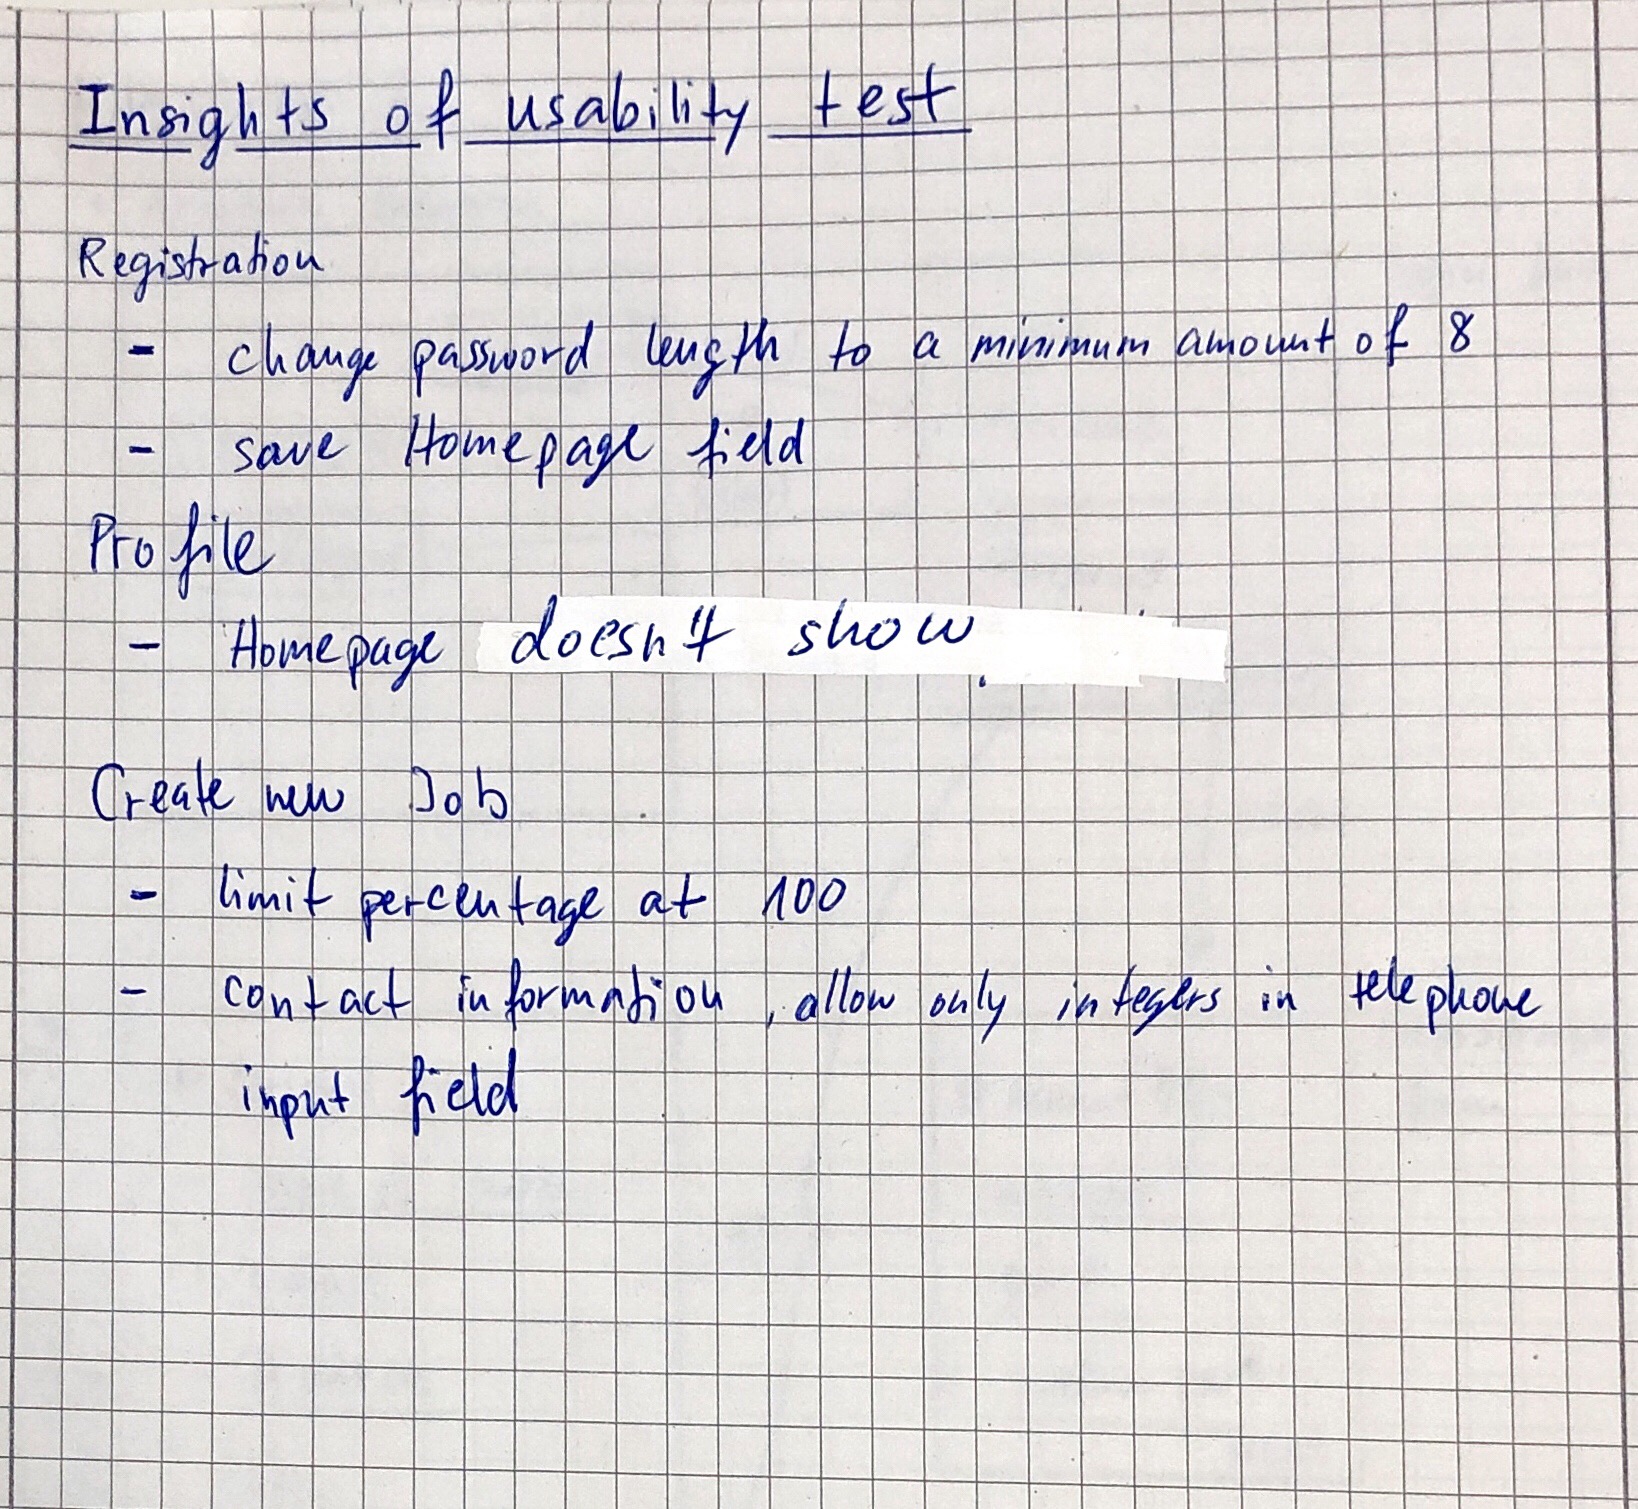 Insights of usability test
Registration
- change password length to a minimum amount of 8
- save Homepage field
Profile
- Homepage doesn't show
Create new Job
- limit percentage at 100
- contact information, allow only integers in telephone
input field